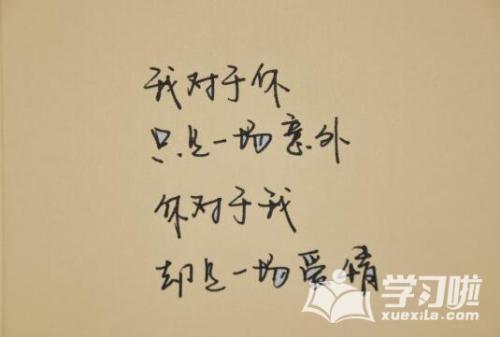 我对于你
只是一场意外
你对于我
却是一场爱情
学习啦
xuexila.com